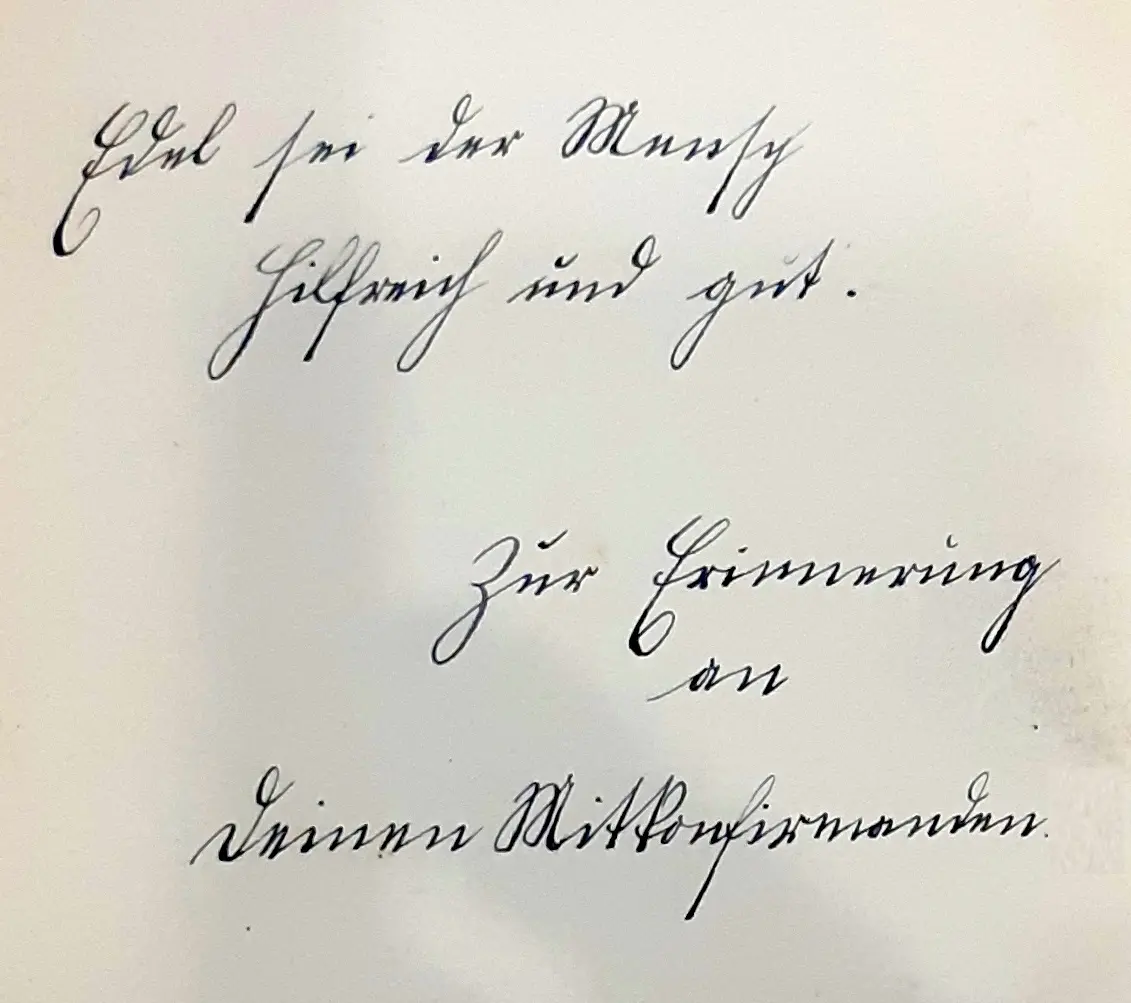 Edel sei der Mensch
Hilfreich und gut.
Zur Erinnerung
an
Deinen Mitkonfirmanden.